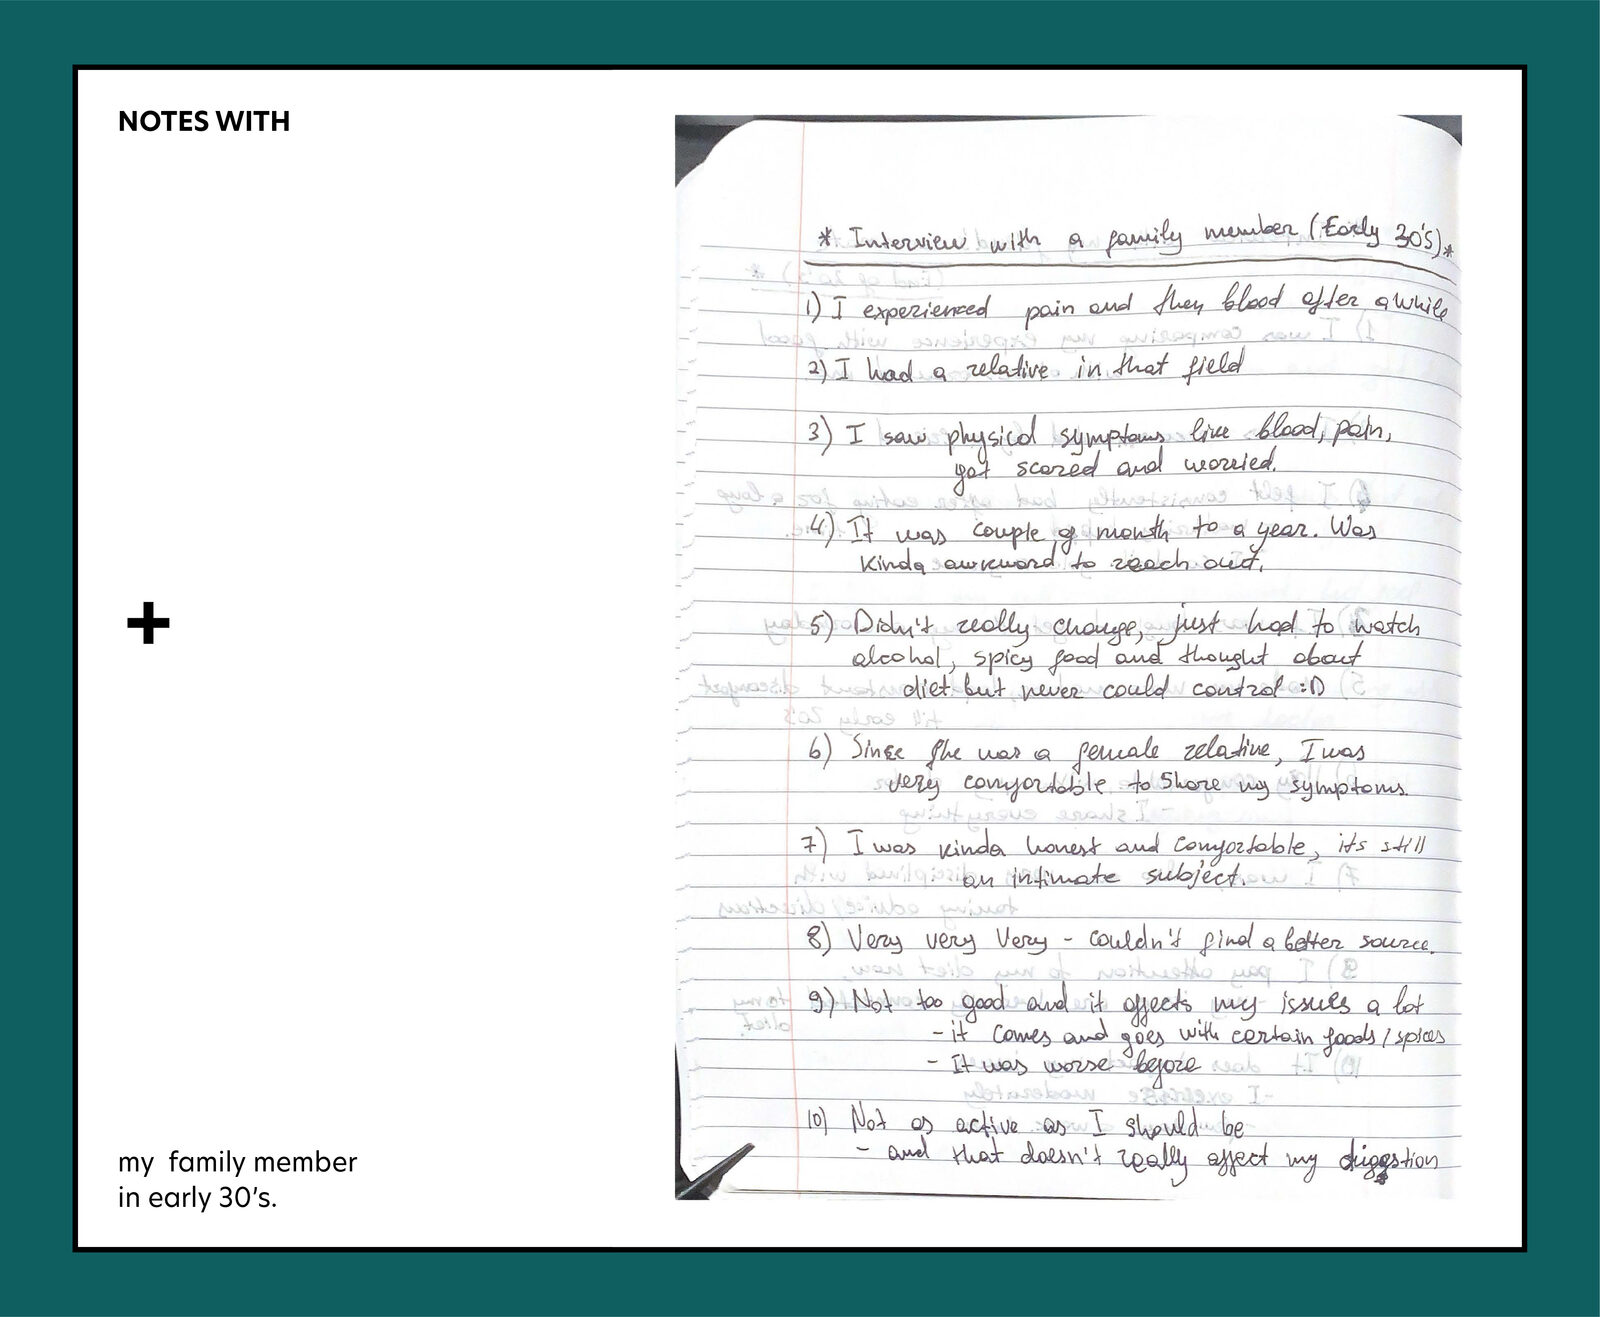 NOTES WITH
+
my family member
in early 30's.
* Interview with a family member (Early 30's) *
1) I experienced pain and then blood after a while
2) I had a relative in that field
3) I saw physical symptoms like blood, pain,
got scared and worried.
4) It was couple of month to a year. Was
kinda awkward to reach out.
5) Didn't really change, just had to watch
alcohol, spicy food and thought about
diet but never could control :D
6) Since she was a female relative, I was
very comfortable to share my symptoms.
7) I was kinda honest and comfortable, its still
an intimate subject.
8) Very very Very - couldn't find a better source.
9) Not too good and it affects my issues a lot
- it comes and goes with certain foods / spices
- It was worse before
10) Not as active as I should be
- and that doesn't really affect my digestion